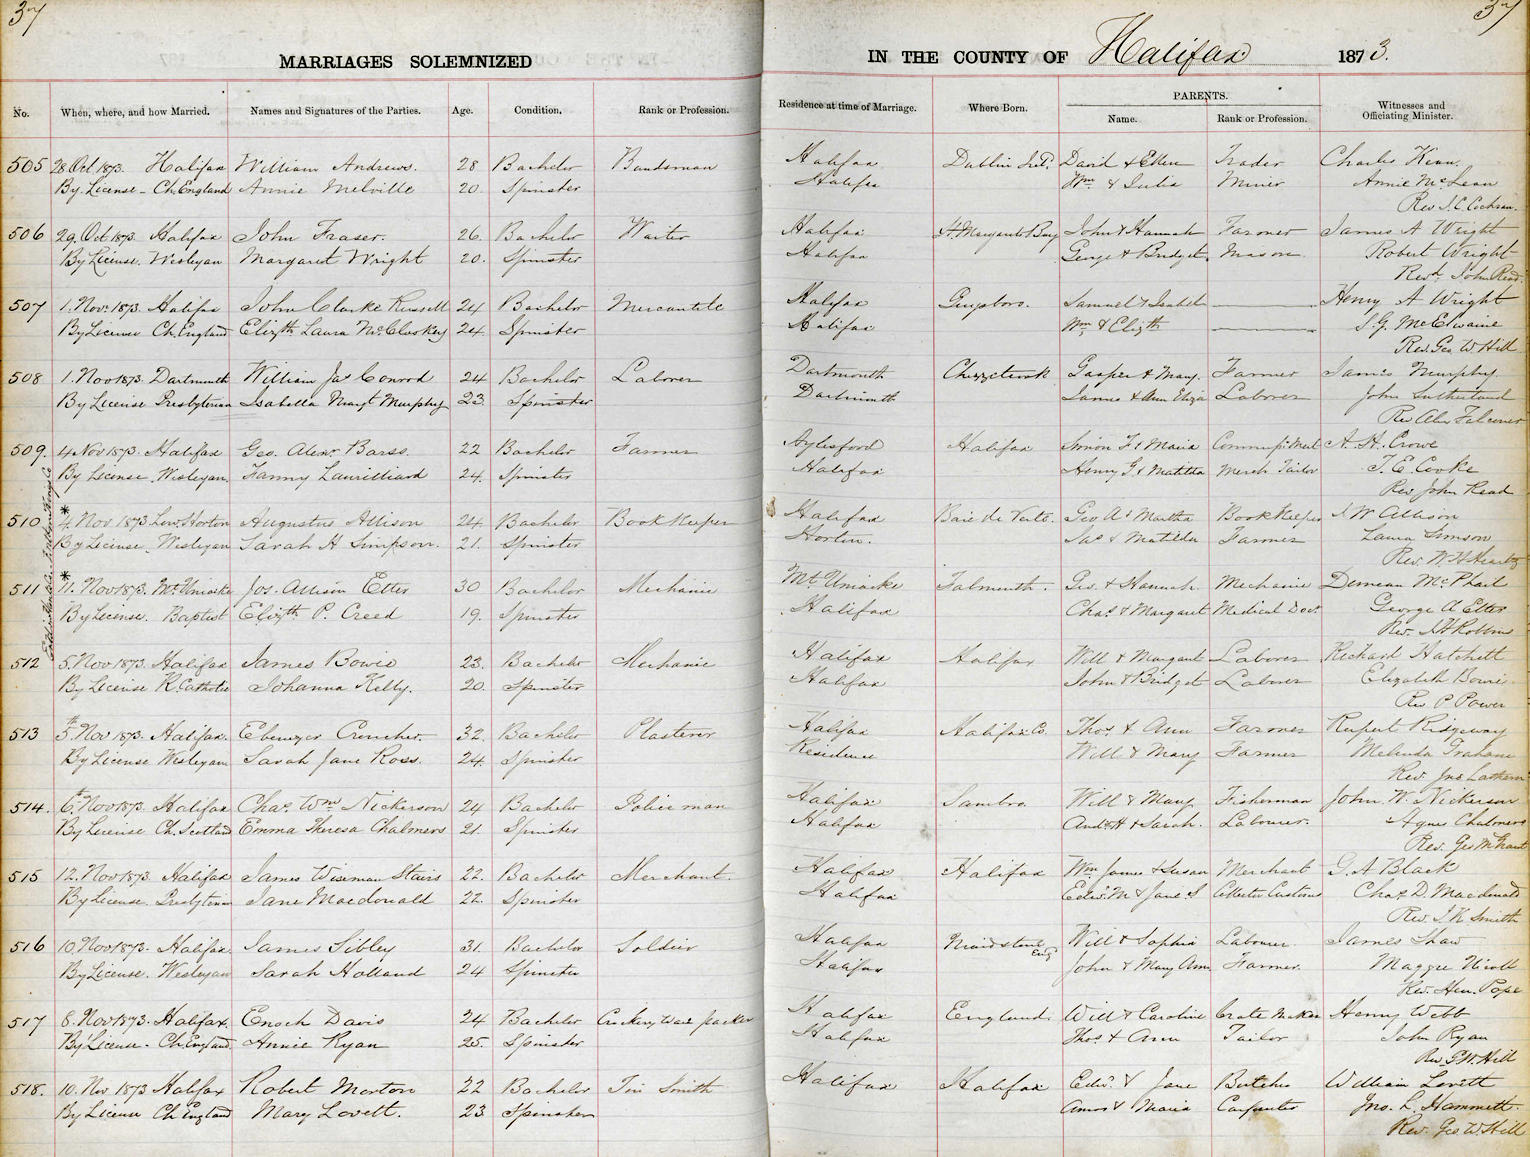 37
37
MARRIAGES SOLEMNIZED
IN THE COUNTY OF Halifax 1873.
No. When, where, and how Married. Names and Signatures of the Parties. Age. Condition. Rank or Profession. Residence at time of Marriage. Where Born. PARENTS. Name. Rank or Profession. Witnesses and Officiating Minister.
505 28 Oct 1873. Halifax William Andrews. 28 Bachelor Bandsman Halifax Dublin Ird. David & Ellen Trader Charles Kinn.
By License - Ch England Annie Melville 20. Spinster Halifax Wm & Julia Miner Annie McLean
Rev J. C. Cochran.
506 29. Oct 1873. Halifax John Fraser. 26. Bachelor Waiter Halifax St. Margarets Bay John & Hannah Farmer James A Wright
By License. Wesleyan Margaret Wright 20. Spinster Halifax George & Bridget. Mason Robert Wright
Revd. John Read.
507 1. Nov. 1873. Halifax John Clarke Russell 24 Bachelor Mercantile Halifax Guysboro. Samuel & Isabel Henry A Wright
By License Ch England Elizth Laura McCluskey 24. Spinster Halifax Wm & Elizth S. G. McElwaine
Rev. Geo W Hill
508 1. Nov 1873. Dartmouth William Jas Conrod 24 Bachelor Laborer Dartmouth Chezzetcook Gasper & Mary. Farmer James Murphy
By License Presbyterian Isabella Margt Murphy 23. Spinster Dartmouth James & Ann Eliza Laborer John Sutherland
Rev Alex Falconer
509. 4 Nov 1873. Halifax Geo. Alexr Barss. 22 Bachelor Farmer Aylesford Halifax Simon F. & Maria Commissn. Mert A. H. Crowe
By License. Wesleyan. Fanny Laurilliard 24. Spinster Halifax Henry G. & Matilda Merch Tailor T. E. Cooke
Rev John Read
510 * 4. Nov 1873 Low. Horton Augustus Allison 24 Bachelor Book Keeper Halifax Baie de Verte. Geo A & Martha Book Keeper J W Allison
By License. Wesleyan Sarah H Simpson. 21. Spinster Horton. Jas & Matilda Farmer Laura Simson
Rev. W H Heartz
511 * 11. Nov 1873. Mt. Uniacke Jos. Allison Etter 30 Bachelor Mechanic Mt Uniacke Falmouth. Geo. & Hannah. Mechanic Duncan McPhail
By License. Baptist Elizth P. Creed 19. Spinster Halifax Chas & Margaret Medical Doct. George A Etter
Rev. J H Robbins
512 5. Nov 1873. Halifax James Bowie 23. Bachelor Mechanic Halifax Halifax Will & Margaret Laborer Richard Hatchett
By License R. Catholic Johanna Kelly. 20. Spinster Halifax John & Bridget Laborer Elizabeth Bowie
Rev P Power
513 5. Nov 1873. Halifax. Ebenezer Croucher. 32. Bachelor Plasterer Halifax Halifax Co. Thos & Ann Farmer Rupert Ridgeway
By License Wesleyan Sarah Jane Ross. 24. Spinster Residence Will & Mary Farmer Melinda Graham
Rev. Jno Lathern
514. 6. Nov 1873. Halifax Chas Wm Nickerson 24 Bachelor Policeman Halifax Sambro. Will & Mary Fisherman John. W. Nickerson
By License Ch. Scotland Emma Theresa Chalmers 21. Spinster Halifax Andw H & Sarah. Labourer. Agnes Chalmers
Rev. Geo M Grant
515 12. Nov 1873. Halifax James Wiseman Stairs 22. Bachelor Merchant. Halifax Halifax Wm James & Susan Merchant G. A Black
By License. Presbyterian Jane Macdonald 22. Spinster Halifax Edw. M. & Jane S Collector Customs Chas D. Macdonald
Rev. J. K Smith
516 10. Nov 1873. Halifax. James Sibley 31. Bachelor Soldier Halifax Maidstone Eng Will & Sophia Labourer. James Shaw
By License. Wesleyan Sarah Holland 24 Spinster Halifax John & Mary Ann Farmer. Maggie Nicoll
Rev. Hen. Pope
517 8. Nov 1873. Halifax. Enoch Davis 24 Bachelor Crockery Ware Packer Halifax England. Will & Caroline Crate Maker Henry Webb
By License. Ch. England. Annie Ryan 25. Spinster Halifax Thos & Ann Tailor John Ryan
Rev G W. Hill
518. 10. Nov 1873 Halifax Robert Morton 22 Bachelor Tin Smith Halifax Halifax Edw. & Jane Butcher William Lovett
By License Ch England Mary Lovett. 23 Spinster Amos & Maria Carpenter Jno. L. Hammett.
Rev. Geo W Hill